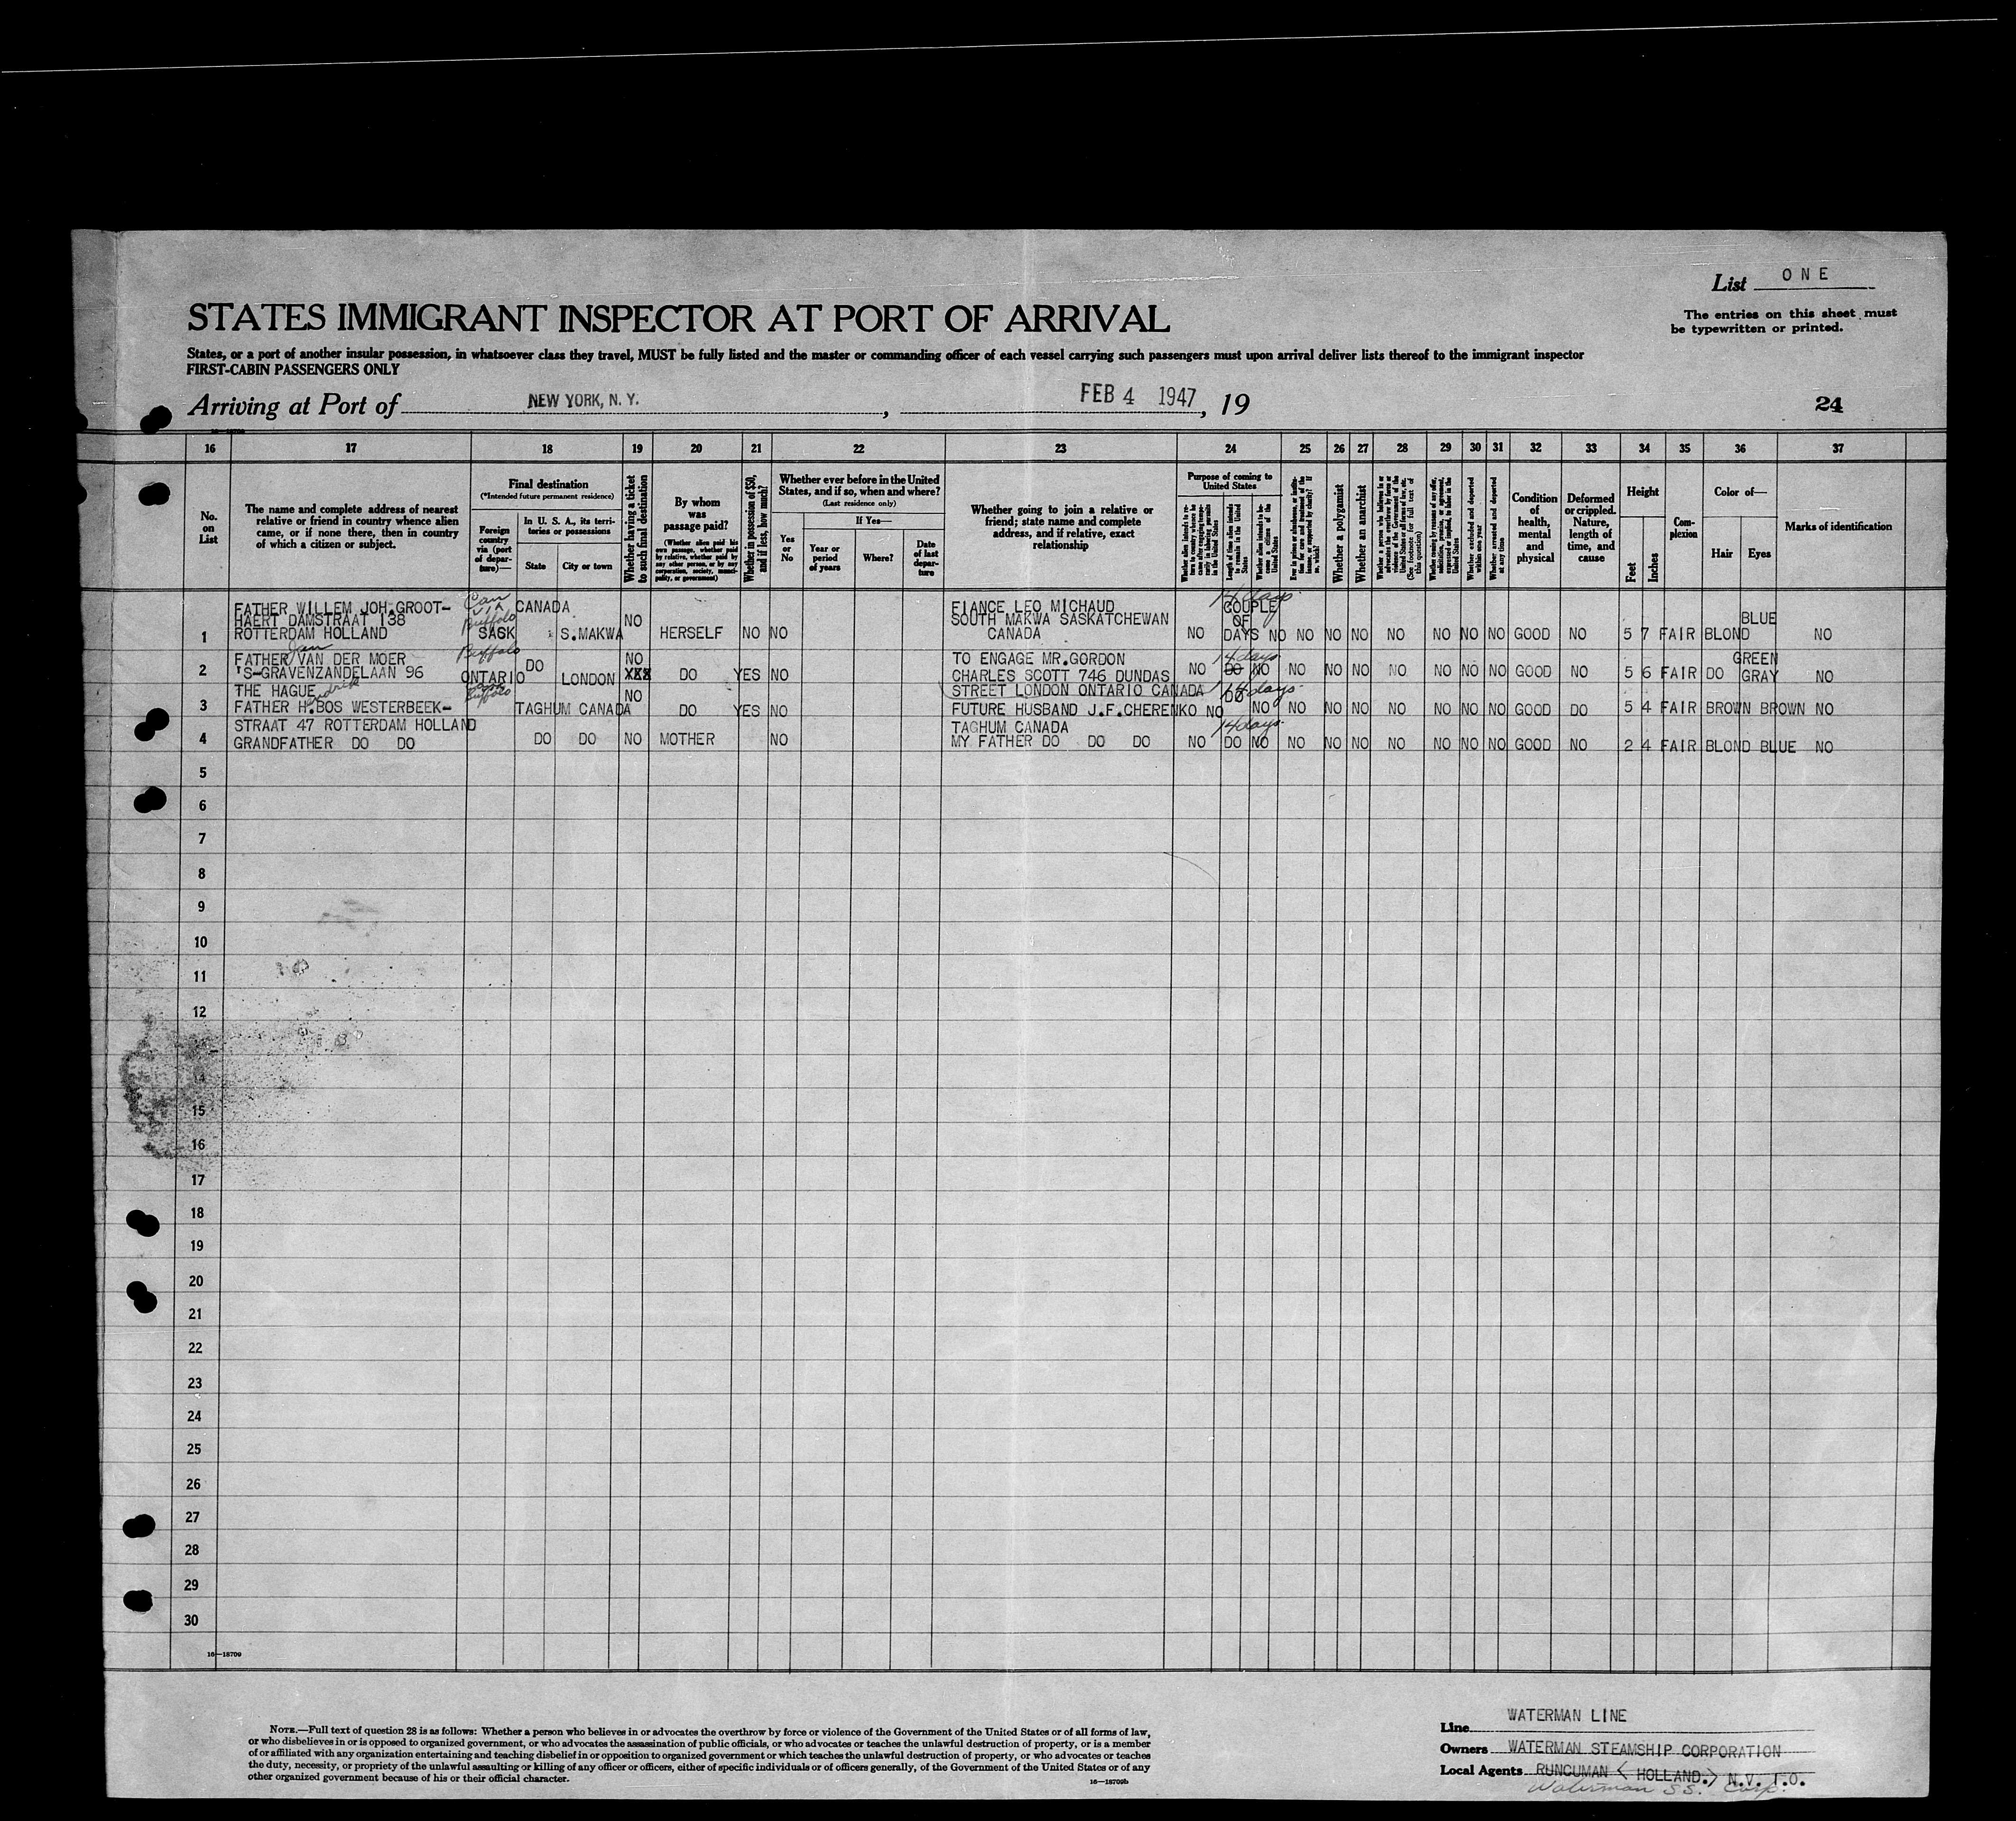 List ONE
The entries on this sheet must
be typewritten or printed.
STATES IMMIGRANT INSPECTOR AT PORT OF ARRIVAL
States, or a port of another insular possession, in whatsoever class they travel, MUST be fully listed and the master or commanding officer of each vessel carrying such passengers must upon arrival deliver lists thereof to the immigrant inspector
FIRST-CABIN PASSENGERS ONLY
Arriving at Port of NEW YORK, N. Y. , FEB 4 1947 , 19
24
16 17 18 19 20 21 22 23 24 25 26 27 28 29 30 31 32 33 34 35 36 37
No.
on
List
The name and complete address of nearest
relative or friend in country whence alien
came, or if none there, then in country
of which a citizen or subject.
Final destination
(*Intended future permanent residence)
Foreign
country
via (port
of depar-
ture)—
In U. S. A., its terri-
tories or possessions
State
City or town
Whether having a ticket
to such final destination
By whom
was
passage paid?
(Whether alien paid his
own passage, whether paid
by relative, whether paid by
any other person, or by any
corporation, society, munici-
pality, or government)
Whether in possession of $50,
and if less, how much?
Whether ever before in the United
States, and if so, when and where?
(Last residence only)
Yes
or
No
If Yes—
Year or
period
of years
Where?
Date
of last
depar-
ture
Whether going to join a relative or
friend; state name and complete
address, and if relative, exact
relationship
Purpose of coming to
United States
Whether alien intends to re-
turn to country whence he
came after engaging tempo-
rarily in laboring pursuits
in the United States
Length of time alien intends
to remain in the United
States
Whether alien intends to be-
come a citizen of the
United States
Ever in prison or almshouse, or institu-
tion for care and treatment of the
insane, or supported by charity? If
so, which?
Whether a polygamist
Whether an anarchist
Whether a person who believes in or
advocates the overthrow by force or
violence of the Government of the
United States or all forms of law, etc.
(See footnote for full text of
this question)
Whether coming by reason of any offer,
solicitation, promise, or agreement,
expressed or implied, to labor in the
United States
Whether excluded and deported
within one year
Whether arrested and deported
at any time
Condition
of
health,
mental
and
physical
Deformed
or crippled.
Nature,
length of
time, and
cause
Height
Feet
Inches
Com-
plexion
Color of—
Hair
Eyes
Marks of identification
1
FATHER WILLEM JOH.GROOT-
HAERT DAMSTRAAT 138
ROTTERDAM HOLLAND
Can
via
Buffalo
SASK
CANADA
S.MAKWA
NO
HERSELF NO NO
FIANCE LEO MICHAUD
SOUTH MAKWA SASKATCHEWAN
CANADA
14 days
NO COUPLE
OF
DAYS NO NO NO NO NO NO NO NO GOOD NO 5 7 FAIR BLOND BLUE NO
2
Jan
FATHER VAN DER MOER
'S-GRAVENZANDELAAN 96
THE HAGUE
Buffalo
ONTARIO DO LONDON NO
XXX
DO YES NO
TO ENGAGE MR.GORDON
CHARLES SCOTT 746 DUNDAS
STREET LONDON ONTARIO CANADA
14 days
NO DO NO NO NO NO NO NO NO NO GOOD NO 5 6 FAIR DO GREEN
GRAY NO
3
endrik
FATHER H.BOS WESTERBEEK-
STRAAT 47 ROTTERDAM HOLLAND
Buffalo
TAGHUM CANADA NO DO YES NO
FUTURE HUSBAND J.F.CHERENKO
TAGHUM CANADA
14 days
NO DO NO NO NO NO NO NO NO NO GOOD DO 5 4 FAIR BROWN BROWN NO
4
GRANDFATHER DO DO
DO DO NO MOTHER NO
MY FATHER DO DO DO
14 days
NO DO NO NO NO NO NO NO NO NO GOOD NO 2 4 FAIR BLOND BLUE NO
5
6
7
8
9
10
11
12
14
15
16
17
18
19
20
21
22
23
24
25
26
27
28
29
30
16—18709
NOTE.—Full text of question 28 is as follows: Whether a person who believes in or advocates the overthrow by force or violence of the Government of the United States or of all forms of law,
or who disbelieves in or is opposed to organized government, or who advocates the assassination of public officials, or who advocates or teaches the unlawful destruction of property, or is a member
of or affiliated with any organization entertaining and teaching disbelief in or opposition to organized government or which teaches the unlawful destruction of property, or who advocates or teaches
the duty, necessity, or propriety of the unlawful assaulting or killing of any officer or officers, either of specific individuals or of officers generally, of the Government of the United States or of any
other organized government because of his or their official character.
16—18709b
Line WATERMAN LINE
Owners WATERMAN STEAMSHIP CORPORATION
Local Agents RUNCUMAN < HOLLAND.> N.V. T.O.
Waterman S.S. Corp.